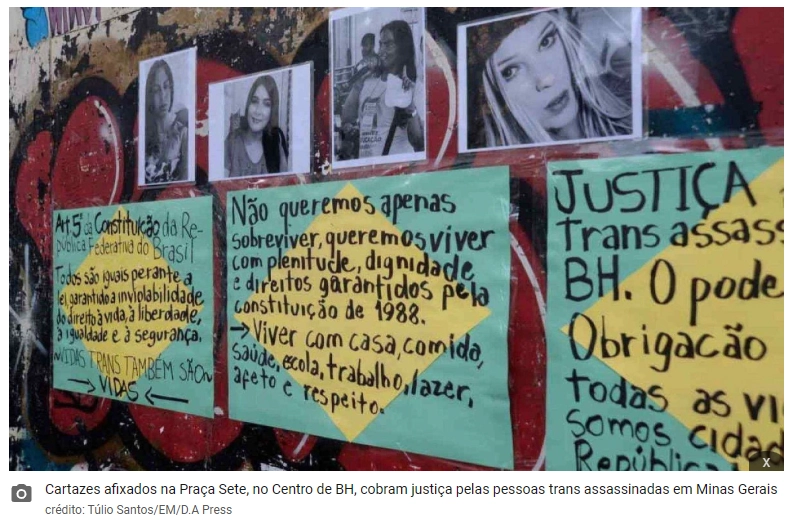 Art 5º da Constituição da Re-
pública Federativa do Brasil
Todos são iguais perante a
lei, garantido a inviolabilidade
do direito à vida, à liberdade,
à igualdade e à segurança.
VIDAS TRANS TAMBÉM SÃO
→ VIDAS ←
Não queremos apenas
sobreviver, queremos viver
com plenitude, dignidade
e direitos garantidos pela
constituição de 1988.
→ Viver com casa, comida,
saúde, escola, trabalho, lazer,
afeto e respeito.
JUSTIÇA
trans assass
BH. O pode
Obrigação
todas as vi
somos cidad
República
X
Cartazes afixados na Praça Sete, no Centro de BH, cobram justiça pelas pessoas trans assassinadas em Minas Gerais
crédito: Túlio Santos/EM/D.A Press